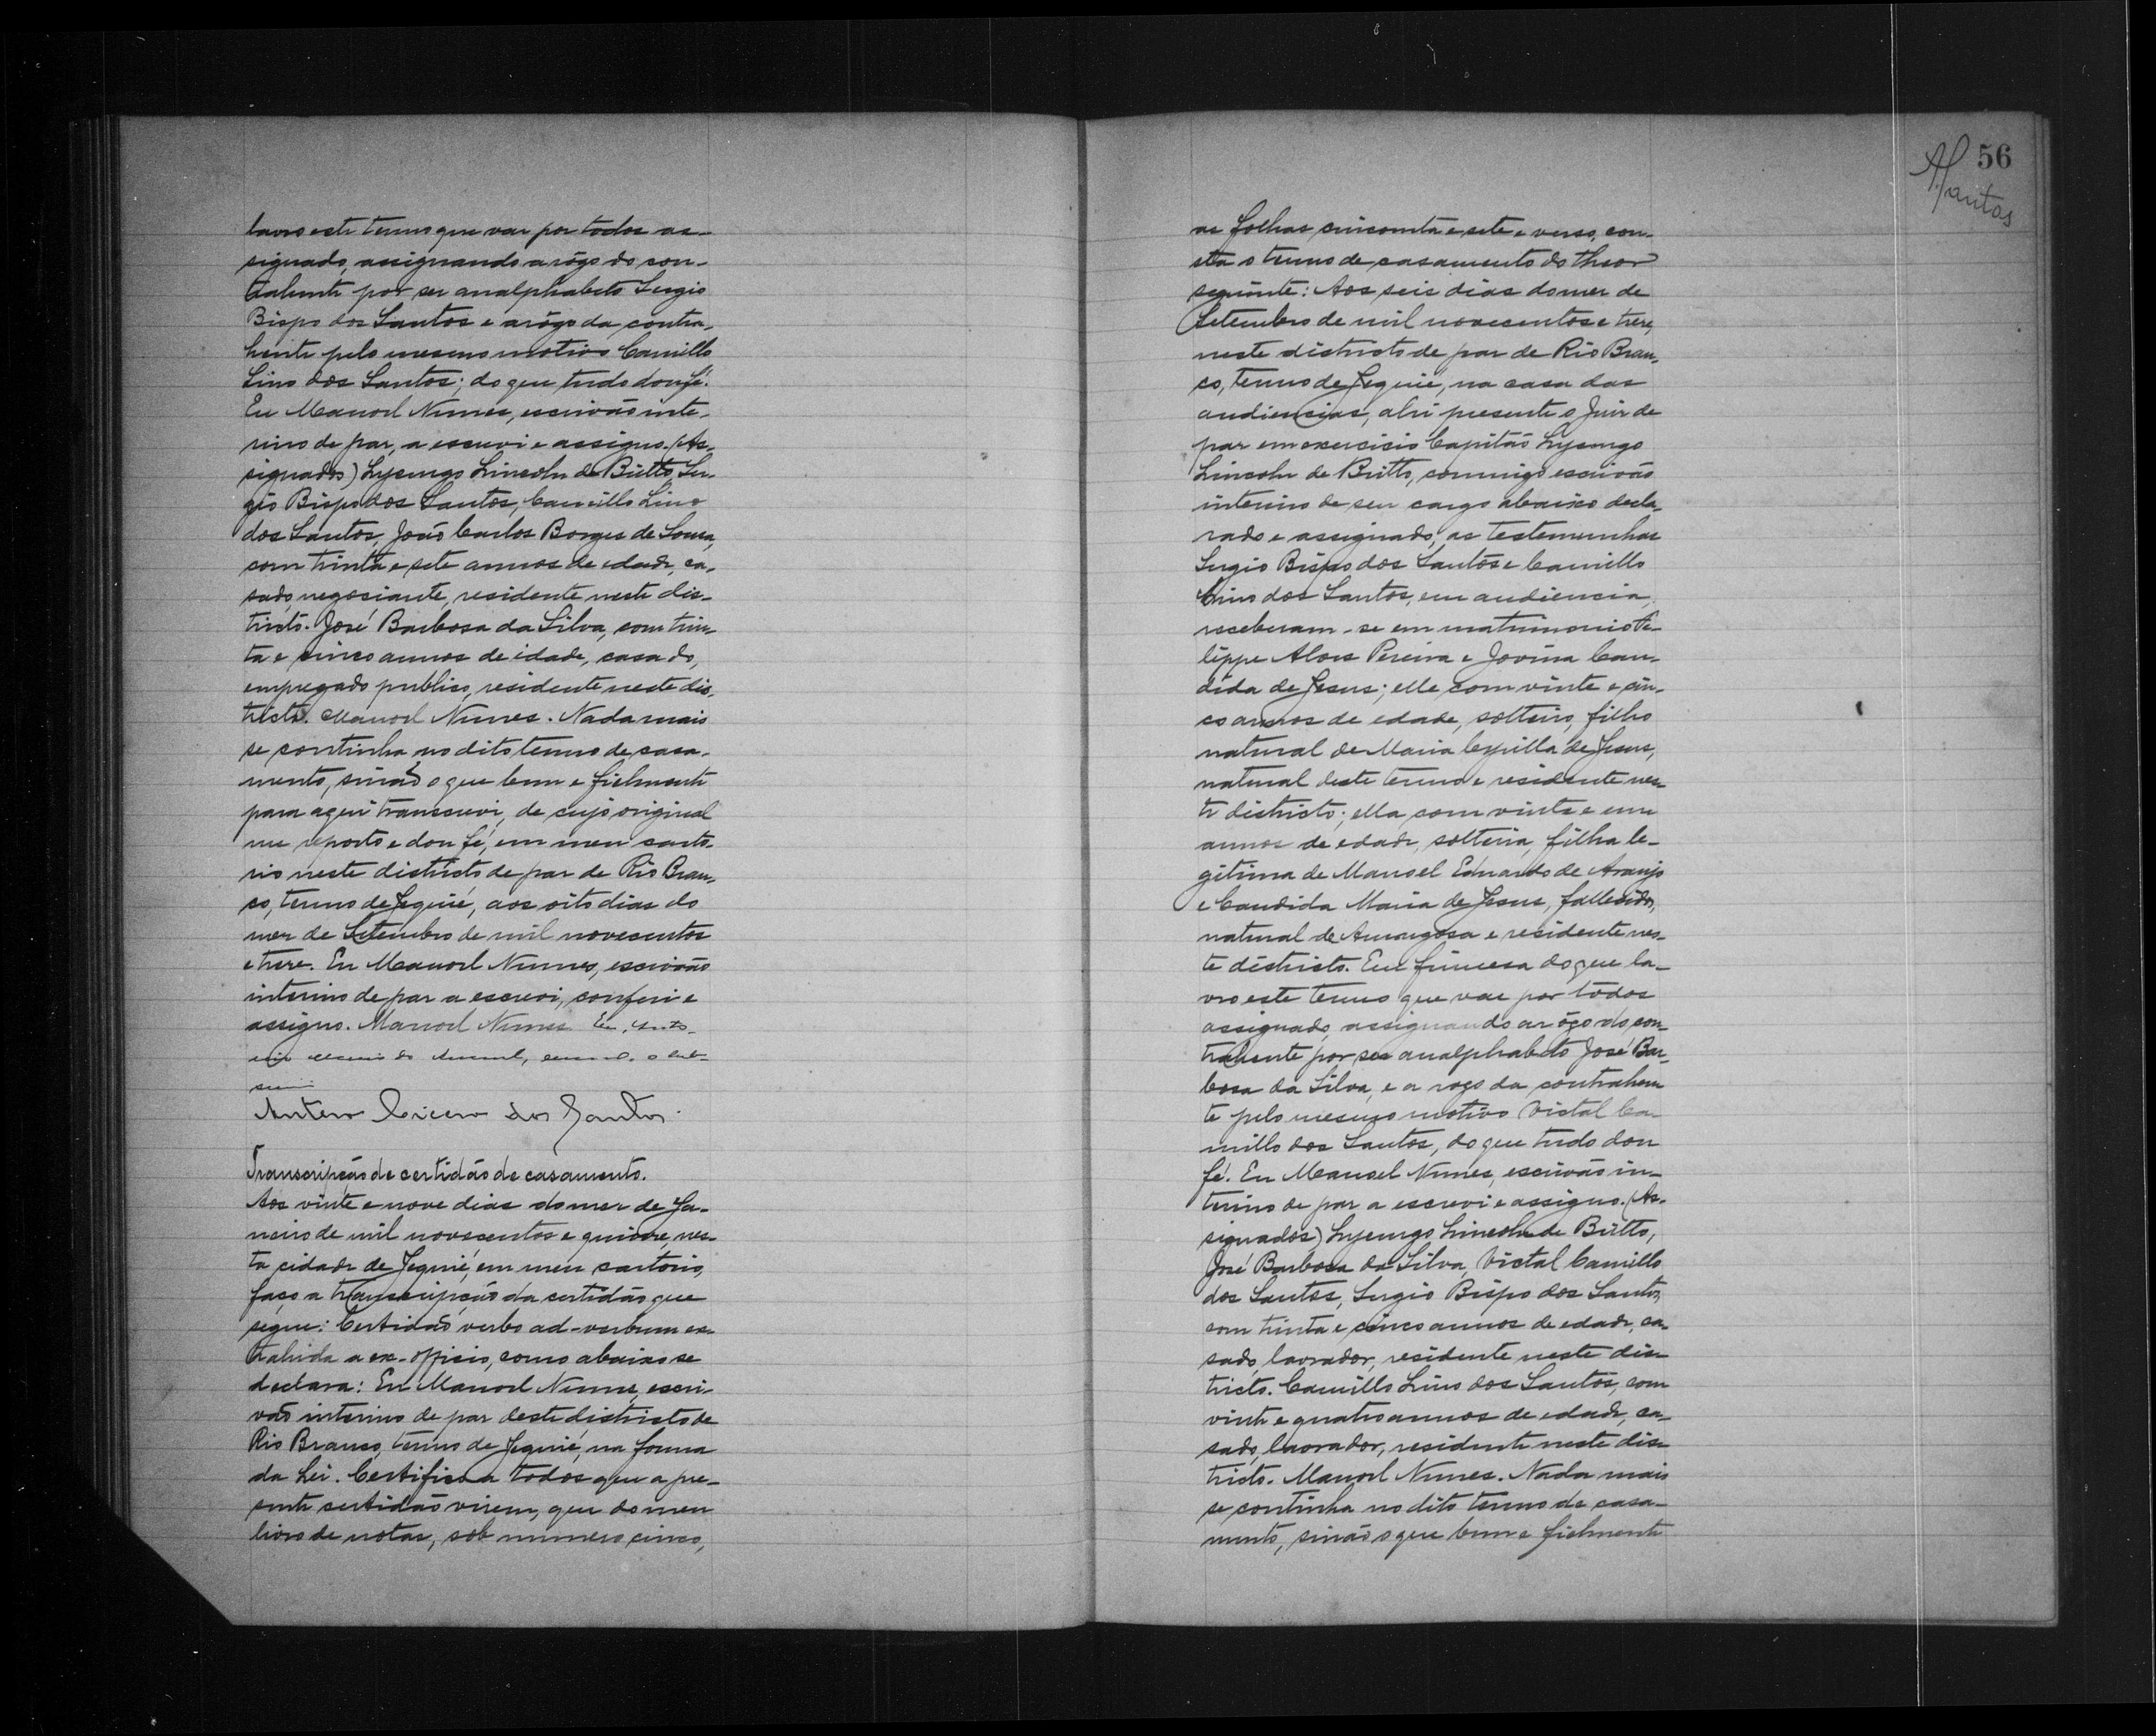 lavro este termo que vae por todos as-
signado, assignando a rôgo do con-
trahente por ser analphabeto Sergio
Bispo dos Santos e a rôgo da contra-
hente pelo mesmo motivo Camillo
Lino dos Santos; do que tudo dou fé.
Eu Manoel Nunes, escrivão inte-
rino de paz, a escrevi e assigno. (As-
signados) Lycurgo Lincoln de Britto, Ser-
gio Bispo dos Santos, Camillo Lino
dos Santos, João Carlos Borges de Sousa,
com trinta e sete annos de edade, ca-
sado, negociante, residente neste dis-
tricto. José Barbosa da Silva, com trin-
ta e cinco annos de idade, casado,
empregado publico, residente neste dis-
tricto. Manoel Nunes. Nada mais
se continha no dito termo de casa-
mento, sinão o que bem e fielmente
para aqui transcrevi, de cujo original
me reporto e dou fé, em meu carto-
rio neste districto de paz de Rio Bran-
co, termo de Jequié, aos oito dias do
mez de Setembro de mil novecentos
e treze. Eu Manoel Nunes, escrivão
interino de paz a escrevi, conferi e
assigno. Manoel Nunes. Eu,
Antero Cicero dos Santos.
Transcripção de certidão de casamento.
Aos vinte e nove dias do mez de Ja-
neiro de mil novecentos e quinze, nes-
ta cidade de Jequié, em meu cartorio,
faço a transcripção da certidão que
segue: Certidão verbo ad-verbum ex-
trahida a ex-officio, como abaixo se
declara: Eu Manoel Nunes, escri-
vão interino de paz deste districto de
Rio Branco, termo de Jequié, na forma
da Lei. Certifico a todos que a pre-
sente certidão virem, que do meu
livro de notas, sob numero cinco,
56
ASantos
as folhas cincoenta e sete e verso, con-
sta o termo de casamento do theor
seguinte: Aos seis dias do mez de
Setembro de mil novecentos e treze,
neste districto de paz de Rio Bran-
co, termo de Jequié, na casa das
audiencias, ahi presente o Juiz de
paz em exercicio Capitão Lycurgo
Lincoln de Britto, commigo escrivão
interino de seu cargo abaixo decla-
rado e assignado, as testemunhas
Sergio Bispo dos Santos e Camillo
Lino dos Santos, em audiencia,
receberam-se em matrimonio Fe-
lippe Alves Pereira e Jovina Can-
dida de Jesus; elle, com vinte e cin-
co annos de edade, solteiro, filho
natural de Maria Cyrilla de Jesus,
natural deste termo e residente nes-
te districto; ella com vinte e um
annos de edade, solteira, filha le-
gitima de Manoel Eduardo de Araujo
e Candida Maria de Jesus, fallecidos,
natural de Amargosa e residente nes-
te districto. Em firmesa do que la-
vro este termo que vae por todos
assignado, assignando a rôgo do con-
trahente por ser analphabeto José Bar-
bosa da Silva, e a rogo da contrahen-
te pelo mesmo motivo Victal Ca-
millo dos Santos, do que tudo dou
fé. Eu Manoel Nunes, escrivão in-
terino de paz a escrevi e assigno. (As-
signados) Lycurgo Lincoln de Britto,
José Barbosa da Silva, Victal Camillo
dos Santos, Sergio Bispo dos Santos,
com trinta e cinco annos de edade, ca-
sado, lavrador, residente neste dis-
tricto. Camillo Lino dos Santos, com
vinte e quatro annos de edade, ca-
sado, lavrador, residente neste dis-
tricto. Manoel Nunes. Nada mais
se continha no dito termo de casa-
mento, sinão o que bem e fielmente